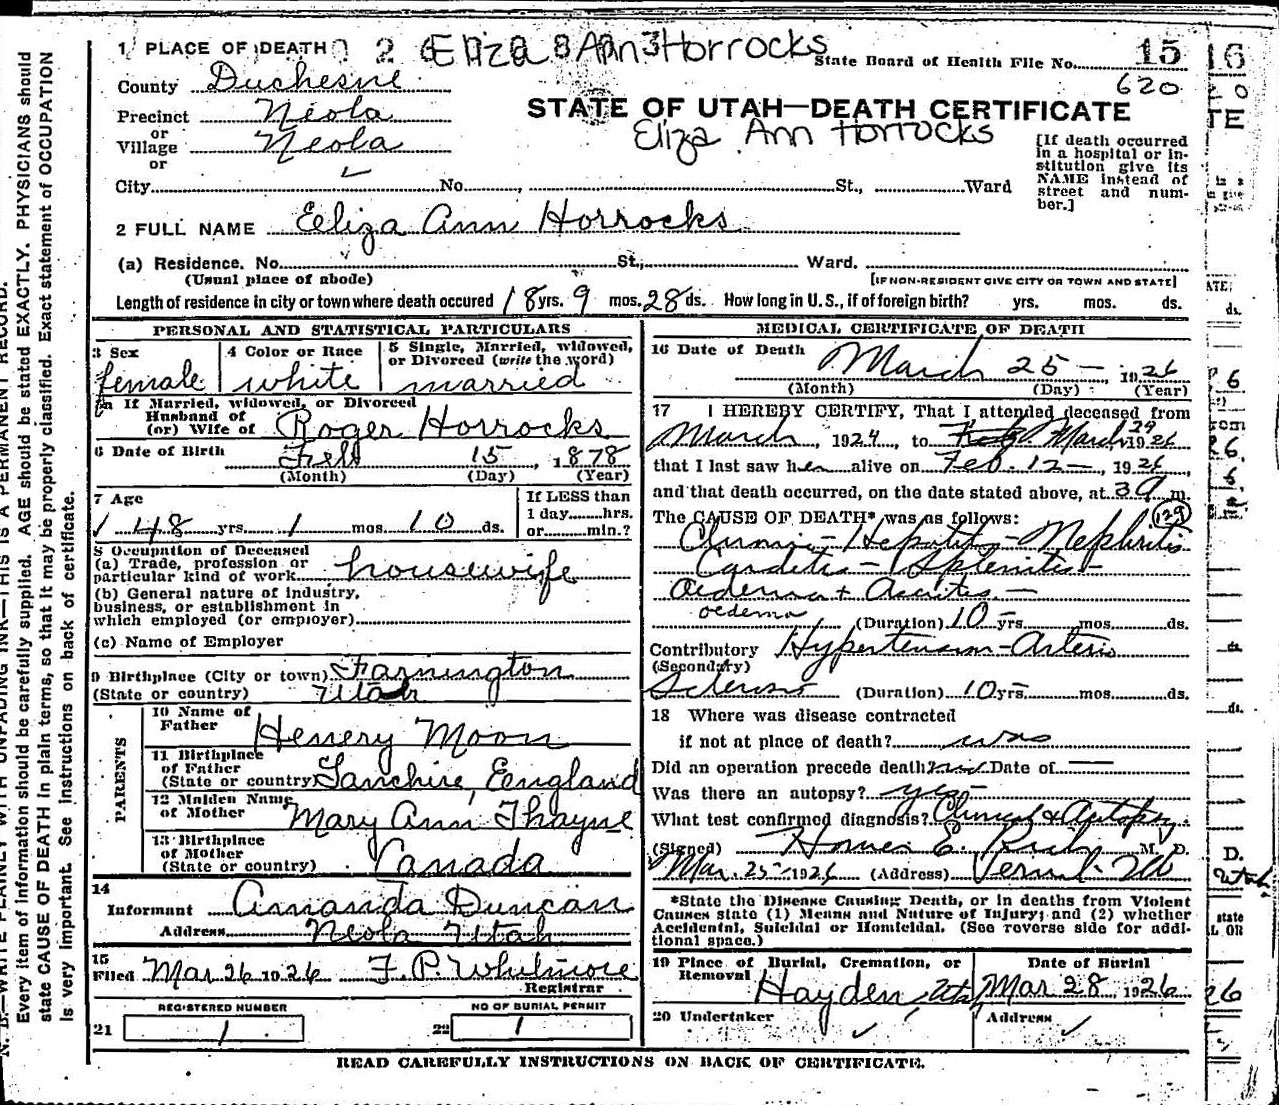 1 PLACE OF DEATH Eliza Ann Horrocks State Board of Health File No. 15
620
County Duchesne
STATE OF UTAH—DEATH CERTIFICATE
Precinct Neola
Eliza Ann Horrocks
or
Village Neola
or
City No. , St., Ward
[If death occurred
in a hospital or in-
stitution give its
NAME instead of
street and num-
ber.]
2 FULL NAME Eeliza Ann Horrocks
(a) Residence. No. St., Ward.
(Usual place of abode) [IF NON-RESIDENT GIVE CITY OR TOWN AND STATE]
Length of residence in city or town where death occured 18 yrs. 9 mos. 28 ds. How long in U.S., if of foreign birth? yrs. mos. ds.
PERSONAL AND STATISTICAL PARTICULARS
3 Sex
female
4 Color or Race
white
5 Single, Married, widowed,
or Divorced (write the word)
married
If Married, widowed, or Divorced
Husband of
(or) Wife of Roger Horrocks
6 Date of Birth Feb 15, 1878
(Month) (Day) (Year)
7 Age
48 yrs. 1 mos. 10 ds.
If LESS than
1 day hrs.
or min.?
8 Occupation of Deceased
(a) Trade, profession or
particular kind of work housewife
(b) General nature of industry,
business, or establishment in
which employed (or employer)
(c) Name of Employer
9 Birthplace (City or town) Farmington
(State or country) Utah
PARENTS
10 Name of
Father Henery Moon
11 Birthplace
of Father
(State or country) Lanchire, Eengland
12 Maiden Name
of Mother Mary Ann Thayne
13 Birthplace
of Mother
(State or country) Canada
14
Informant Amanda Duncan
Address Neola Utah
15
Filed Mar 26 1926 F. P. Whitmore
Registrar
REGISTERED NUMBER
21 1
NO OF BURIAL PERMIT
22 1
MEDICAL CERTIFICATE OF DEATH
16 Date of Death March 25 — , 1926
(Month) (Day) (Year)
17 I HEREBY CERTIFY, That I attended deceased from
March , 1924 , to March 1926
that I last saw her alive on Feb. 12 — , 1926 ,
and that death occurred, on the date stated above, at 3 a m.
The CAUSE OF DEATH* was as follows: 129
Chronic — Hepatitis — Nephritis
Carditis — Splenitis —
Oedema + Ascites. —
oedema
(Duration) 10 yrs. mos. ds.
Contributory Hypertension — Arterio
(Secondary)
Sclerosis (Duration) 10 yrs mos. ds.
18 Where was disease contracted
if not at place of death?
Did an operation precede death? no Date of —
Was there an autopsy? yes
What test confirmed diagnosis? Clinical & Autopsy.
(Signed) Homer E. Rich M. D.
Mar. 25 — 1926 (Address) Vernal — Ut
*State the Disease Causing Death, or in deaths from Violent
Causes state (1) Means and Nature of Injury; and (2) whether
Accidental, Suicidal or Homicidal. (See reverse side for addi-
tional space.)
19 Place of Burial, Cremation, or
Removal Hayden, Utah
Date of Burial
Mar 28 1926
20 Undertaker
Address
READ CAREFULLY INSTRUCTIONS ON BACK OF CERTIFICATE.
N. B.—WRITE PLAINLY WITH UNFADING INK—THIS IS A PERMANENT RECORD.
Every item of information should be carefully supplied. AGE should be stated EXACTLY. PHYSICIANS should
state CAUSE OF DEATH in plain terms, so that it may be properly classified. Exact statement of OCCUPATION
is very important. See instructions on back of certificate.